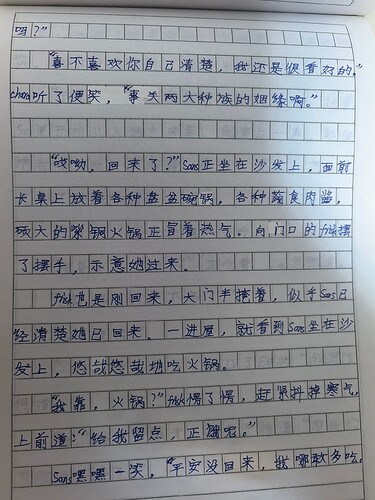 吗？”
“喜不喜欢你自己清楚，我还是很看好的。”
chara听了便笑，“事关两大种族的姻缘啊。”
“哎呦，回来了？”Sans正坐在沙发上，面前
长桌上放着各种盘盆碗锅，各种蔬食肉酱，
硕大的紫铜火锅正冒着热气。向门口的frisk摆
了摆手，示意她过来。
frisk也是刚回来，大门半掩着，似乎Sans已
经清楚她已回来。一进屋，就看到Sans坐在沙
发上，悠哉悠哉地吃火锅。
“我靠，火锅？”frisk愣了愣，赶紧抖掉寒气，
上前道：“给我留点，正饿呢。”
Sans嘿嘿一笑，“平安没回来，我哪敢多吃。